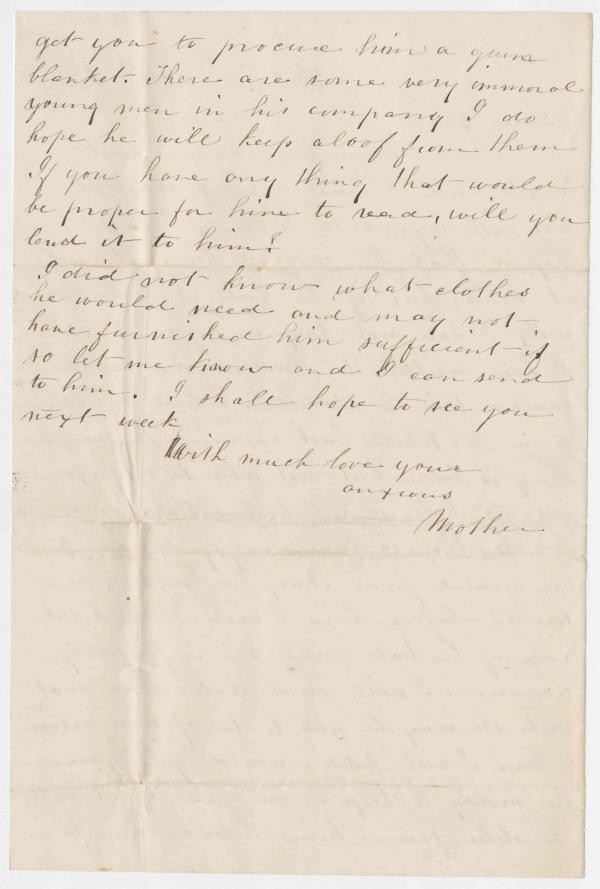 get you to procure him a gum
blanket. There are some very immoral
young men in his company I do
hope he will keep aloof from them
If you have any thing that would
be proper for him to read, will you
lend it to him?
I did not know what clothes
he would need and may not
have furnished him sufficient if
so let me know and I can send
to him. I shall hope to see you
next week
With much love your
anxious
Mother